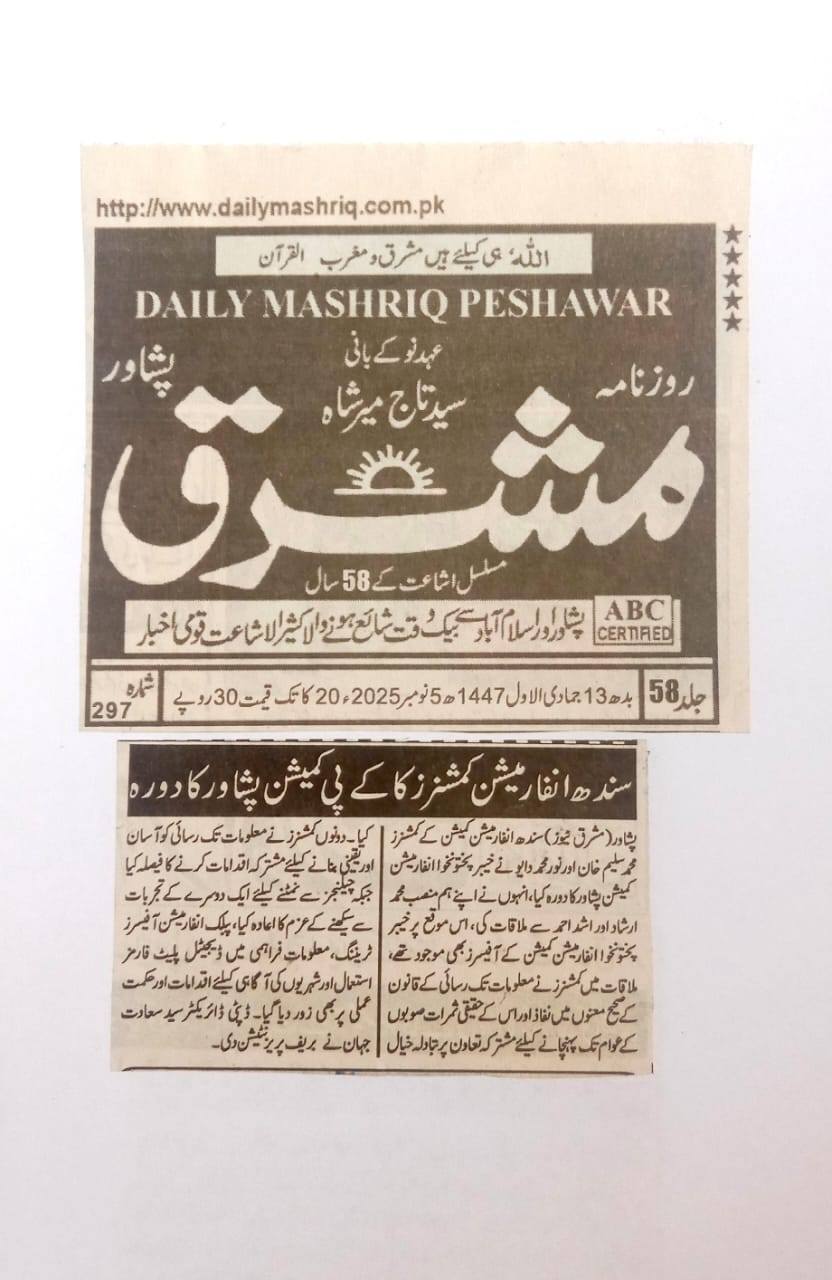 http://www.dailymashriq.com.pk
اللہ ہی کیلئے ہیں مشرق و مغرب القرآن
DAILY MASHRIQ PESHAWAR
عہد نو کے بانی
سید تاج میر شاہ
روزنامہ
مشرق
پشاور
مسلسل اشاعت کے 58 سال
ABC
CERTIFIED
پشاور اور اسلام آباد سے بیک وقت شائع ہونے والا کثیر الاشاعت قومی اخبار
جلد 58
بدھ 13 جمادی الاول 1447ھ 5 نومبر 2025ء 20 کاتک قیمت 30 روپے
شمارہ
297
سندھ انفارمیشن کمشنرز کا کے پی کمیشن پشاور کا دورہ
پشاور (مشرق نیوز) سندھ انفارمیشن کمیشن کے کمشنرز
محمد سلیم خان اور نور محمد دایو نے خیبر پختونخوا انفارمیشن
کمیشن پشاور کا دورہ کیا، انہوں نے اپنے ہم منصب محمد
ارشاد اور اشد احمد سے ملاقات کی، اس موقع پر خیبر
پختونخوا انفارمیشن کمیشن کے آفیسرز بھی موجود تھے،
ملاقات میں کمشنرز نے معلومات تک رسائی کے قانون
کے صحیح معنوں میں نفاذ اور اس کے حقیقی ثمرات صوبوں
کے عوام تک پہنچانے کیلئے مشترکہ تعاون پر تبادلہ خیال
کیا۔ دونوں کمشنرز نے معلومات تک رسائی کو آسان
اور یقینی بنانے کیلئے مشترکہ اقدامات کرنے کا فیصلہ کیا
جبکہ چیلنجز سے نمٹنے کیلئے ایک دوسرے کے تجربات
سے سیکھنے کے عزم کا اعادہ کیا، پبلک انفارمیشن آفیسرز
ٹریننگ، معلومات فراہمی میں ڈیجیٹل پلیٹ فارمز
استعمال اور شہریوں کی آگاہی کیلئے اقدامات اور حکمت
عملی پر بھی زور دیا گیا۔ ڈپٹی ڈائریکٹر سید سعادت
جہان نے بریف پریزنٹیشن دی۔